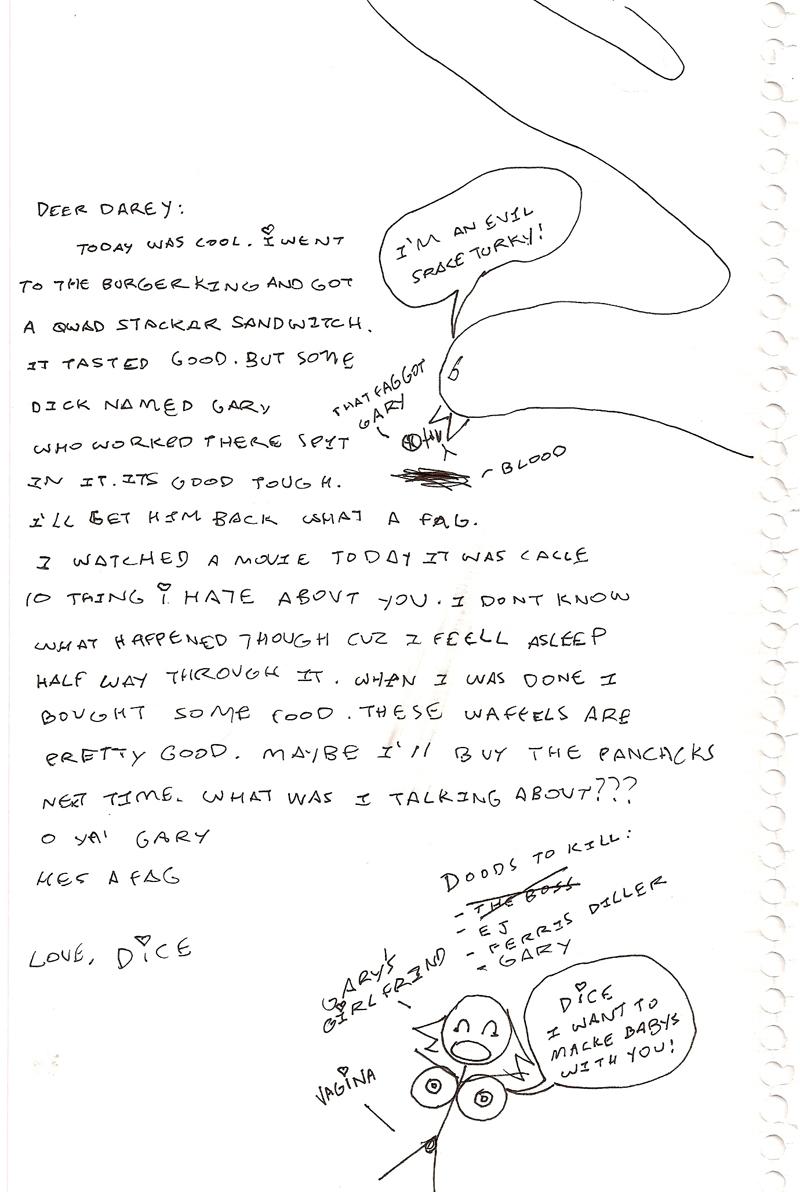 DEER DAREY:
TODAY WAS COOL. I WENT
TO THE BURGER KING AND GOT
A QWAD STACKAR SANDWITCH.
IT TASTED GOOD. BUT SOME
DICK NAMED GARY
WHO WORKED THERE SPIT
IN IT. ITS GOOD TOUGH.
I'LL GET HIM BACK WHAT A FAG.
I WATCHED A MOVIE TODAY IT WAS CALLE
10 THING I HATE ABOUT YOU. I DONT KNOW
WHAT HAPPENED THOUGH CUZ I FEELL ASLEEP
HALF WAY THROUGH IT. WHEN I WAS DONE I
BOUGHT SOME FOOD. THESE WAFFELS ARE
PRETTY GOOD. MAYBE I'll BUY THE PANCACKS
NEXT TIME. WHAT WAS I TALKING ABOUT???
O YA' GARY
HES A FAG
LOVE, DICE
I'M AN EVIL
SPACE TURKY!
THAT FAGGOT
GARY
BLOOD
DOODS TO KILL:
- THE BOSS
- EJ
- FERRIS DILLER
- GARY
GARY'S
GIRLFRIND
DICE
I WANT TO
MACKE BABYS
WITH YOU!
VAGINA